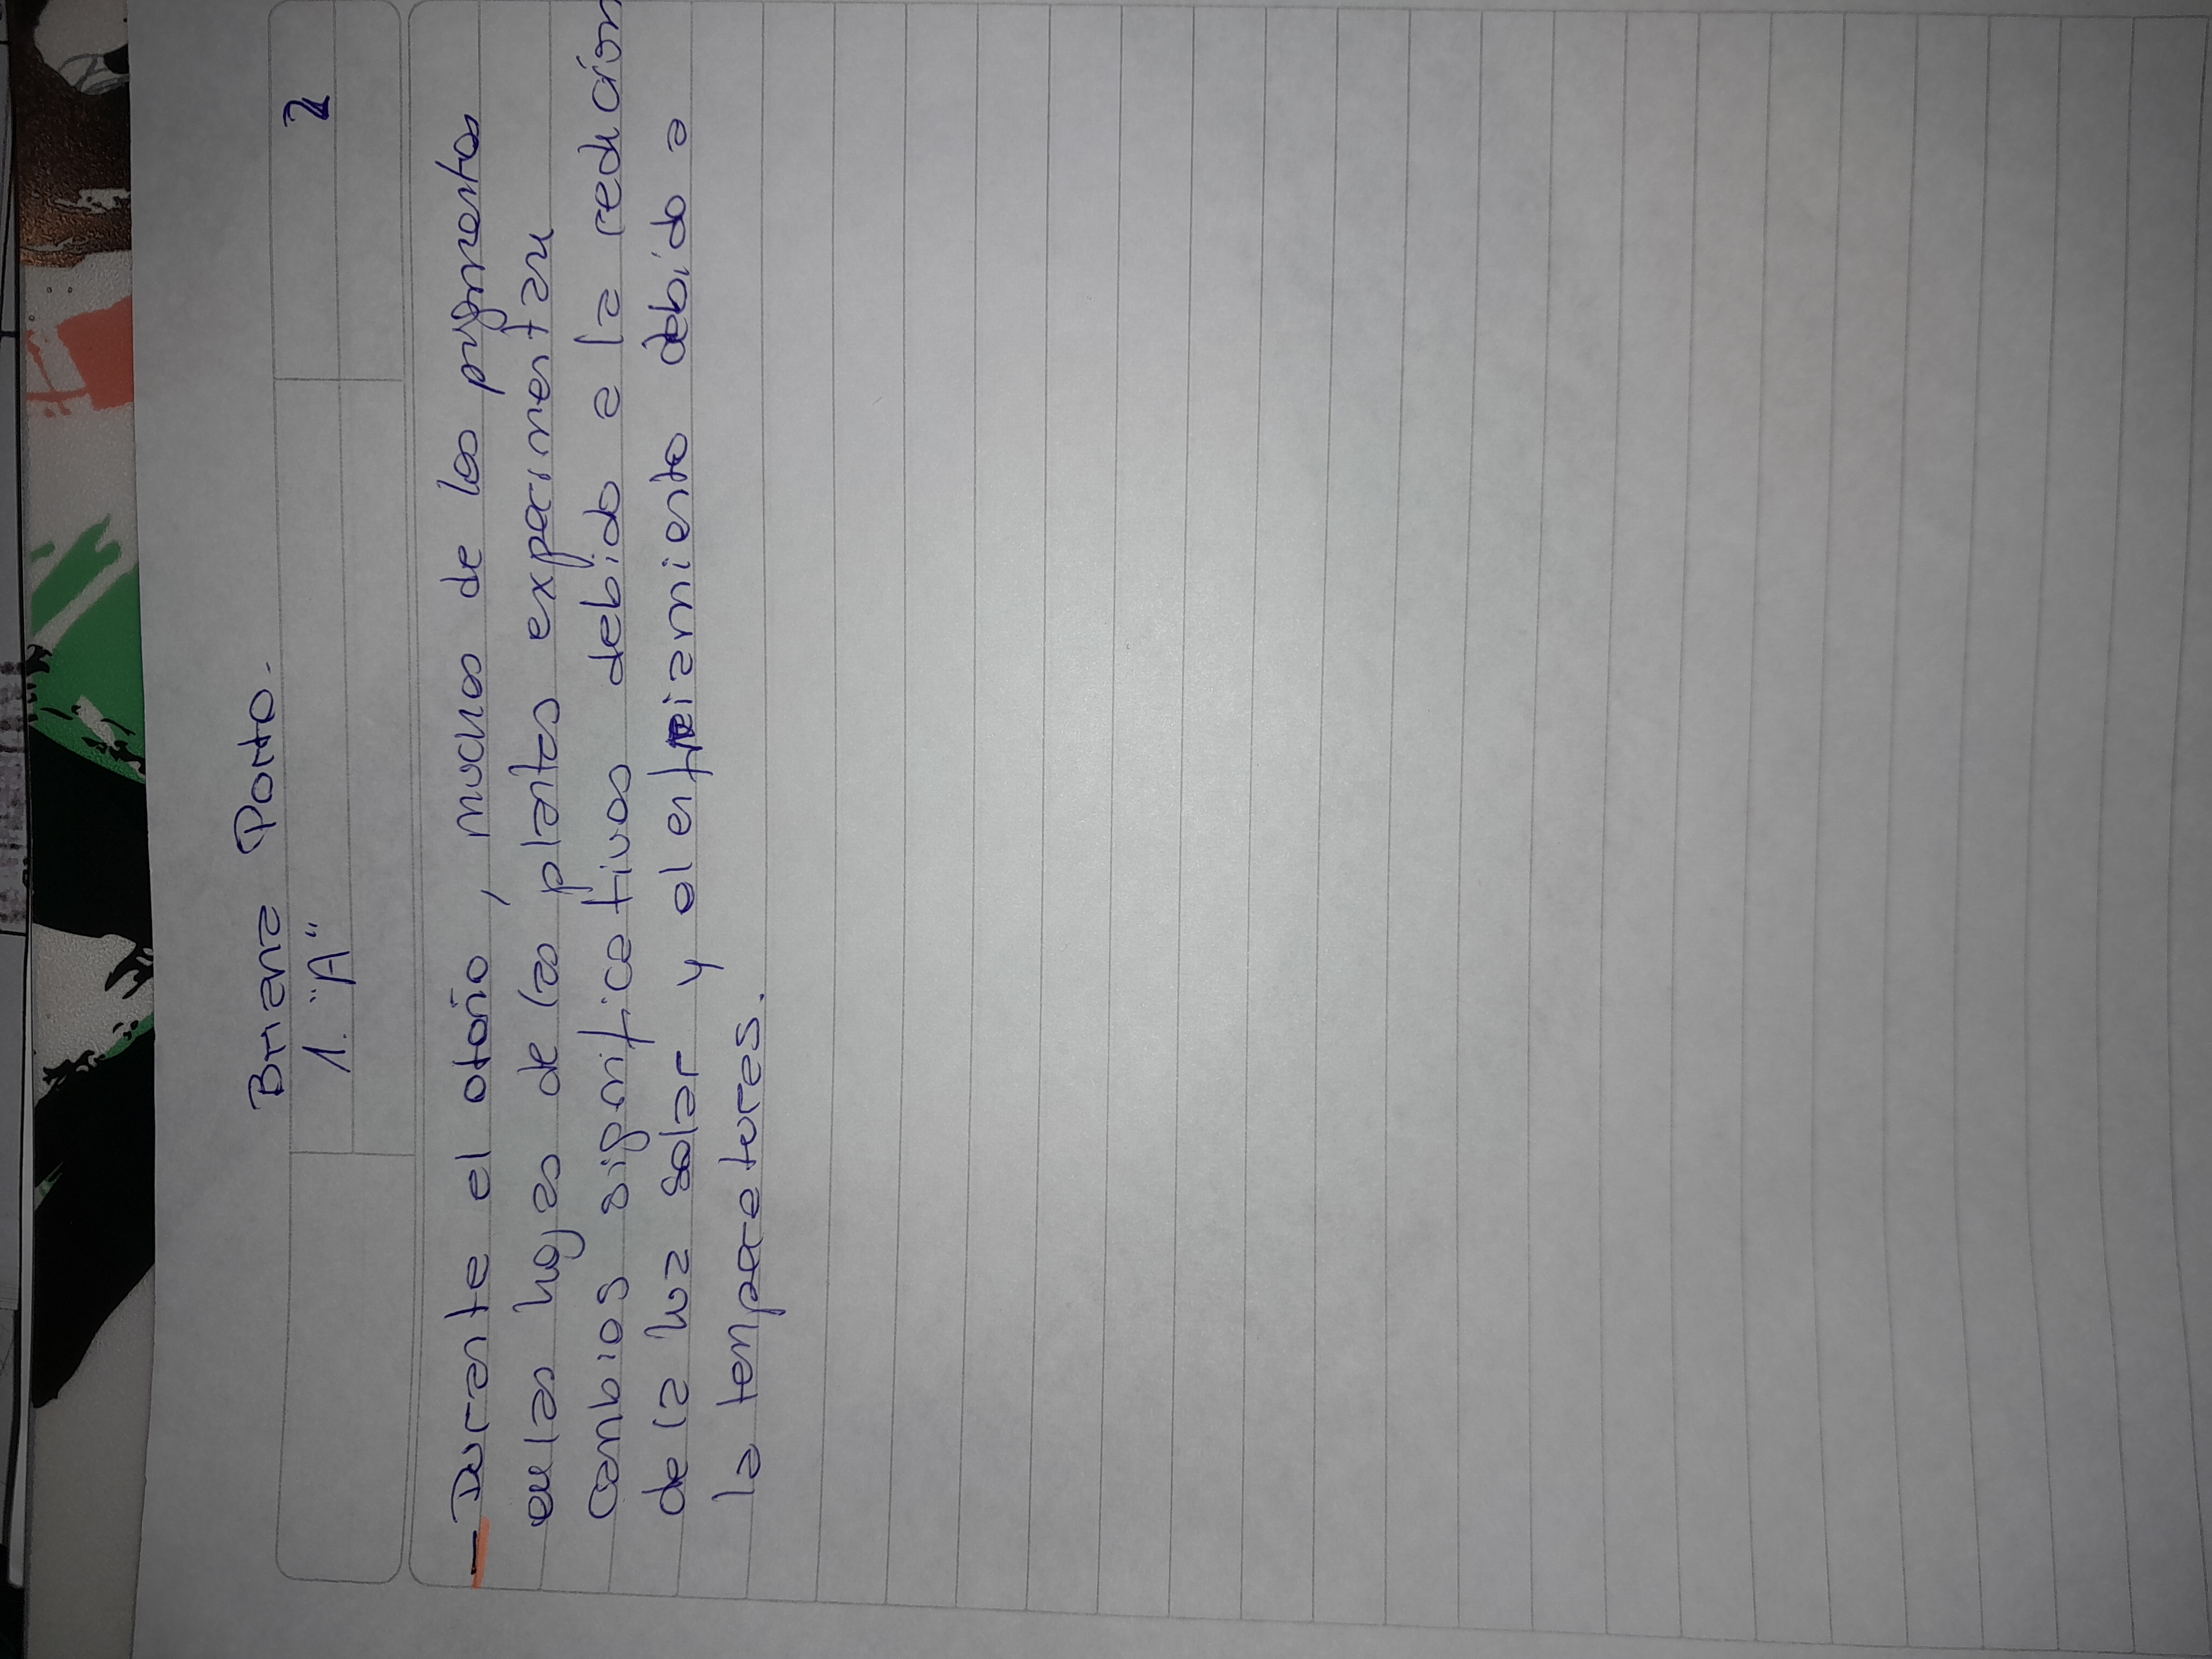 Briana Porto.
1. "A"
2
- Durante el otoño, muchos de los pigmentos
en las hojas de las plantas experimentan
cambios significativos debido a la redución
de la luz solar y el enfriamiento debido a
la temperatures.